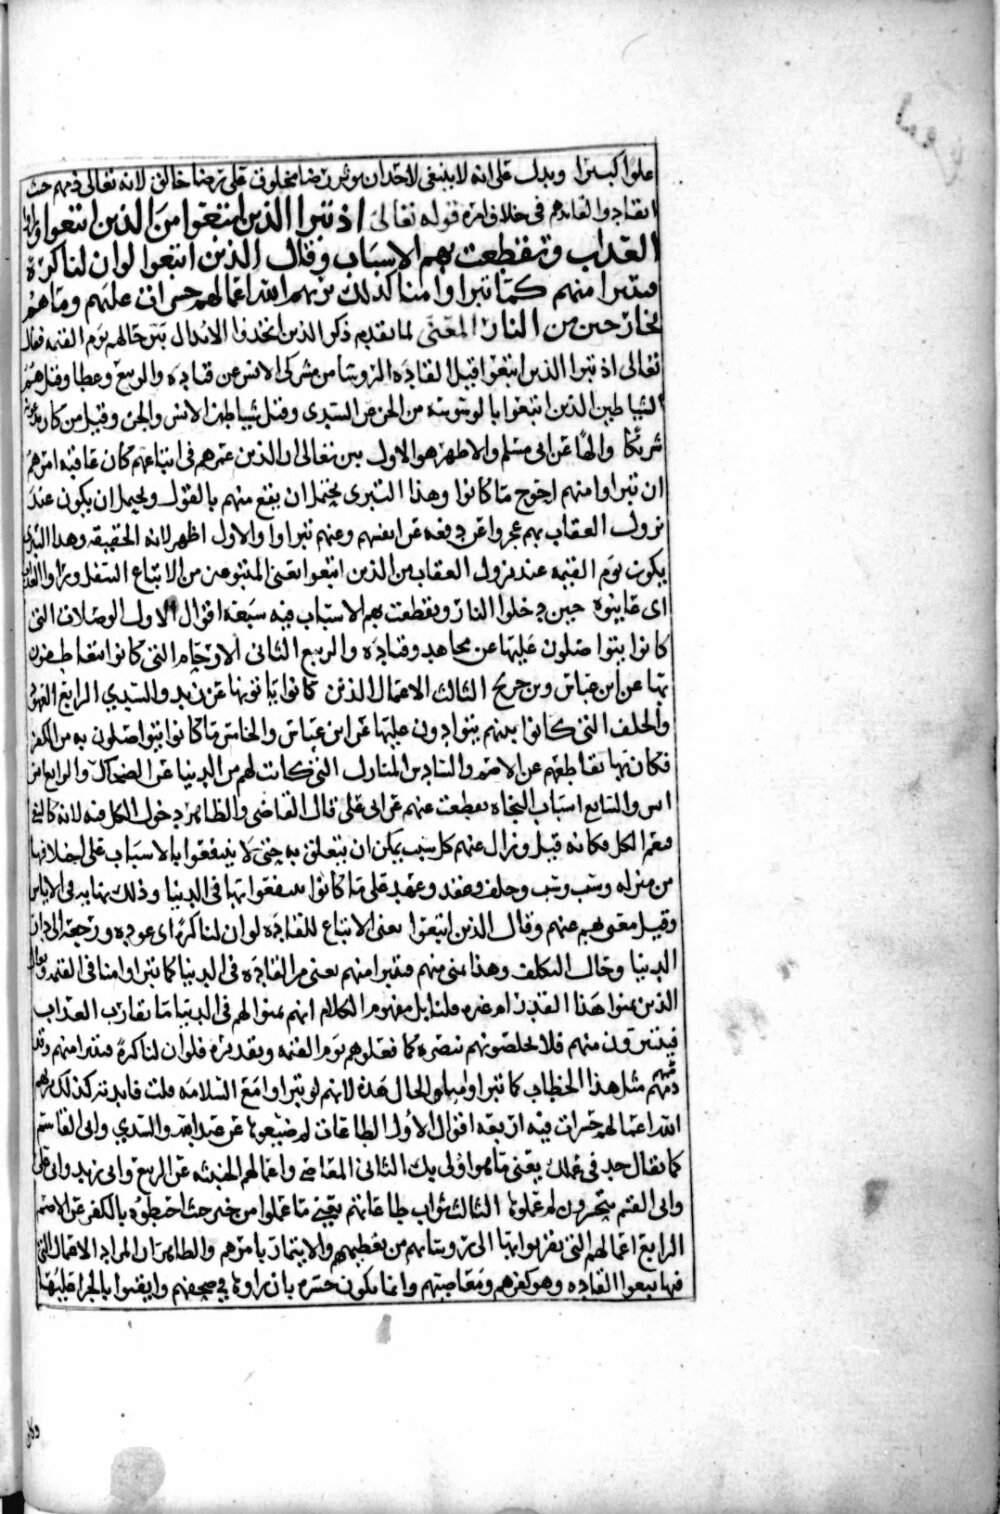 علوا كبيرا ويدل على انه لا ينبغي لاحد ان يوثر رضا مخلوق على رضا خالق لانه تعالى ذمهم حيث
انقادوا لقادتهم في خلاف امره قوله تعالى اذ تبرا الذين اتبعوا من الذين اتبعوا وراوا
العذاب وتقطعت بهم الاسباب وقال الذين اتبعوا لو ان لنا كرة
فنتبرا منهم كما تبراوا منا كذلك يريهم الله اعمالهم حسرات عليهم وما هم
بخارجين من النار المعنى لما تقدم ذكر الذين اتخذوا الانداد بين حالهم يوم القيمه فقال
تعالى اذ تبرا الذين اتبعوا قيل القاده الروسا من مشركي الانس عن قتاده والربيع وعطا وقيل هم
الشياطين الذين اتبعوا بالوسوسه من الجن عن السدي وقيل شياطين الانس والجن وقيل من كان يدعونه
شريكا والها عن ابي مسلم والاظهر هو الاول بين تعالى ان الذين غرهم في اتباعهم كان عاقبه امرهم
ان تبراوا منهم احوج ما كانوا وهذا التبري يحتمل ان يقع منهم بالقول ويحتمل ان يكون عند
نزول العقاب بهم عجزوا عن دفعه عن انفسهم وعنهم تبراوا والاول اظهر لانه الحقيقه وهذا التبري
يكون يوم القيمه عند نزول العقاب من الذين اتبعوا يعني المتبوعين من الاتباع السفل وراوا العذاب
اي عاينوه حين دخلوا النار وتقطعت بهم الاسباب فيه سبعة اقوال الاول الوصلات التي
كانوا يتواصلون عليها عن مجاهد وقتاده والربيع الثاني الارحام التي كانوا يتعاطفون
بها عن ابن عباس وبن جريج الثالث الاعمال الذين كانوا ياتونها عن بن زيد والسدي الرابع العهود
والحلف التي كانوا بينهم يتوادون عليها عن ابن عباس والخامس ما كانوا يتواصلون به من الكفر
فكان بها تقاطعهم عن الاصم والسادس المنازل التي كانت لهم من الدنيا عن الضحاك والرابع بن
انس والسابع اسباب النجاه تقطعت عنهم عن ابي علي قال القاضي والظاهر دخول الكل فيه لانه كالنفي
فيعم الكل فكانه قيل وزال عنهم كل سبب يمكن ان يتعلق به حتى لا ينتفعوا بالاسباب على اختلافها
من منزله وسبب ونسب وحلف وعقد وعهد على ما كانوا ينتفعوا بها في الدنيا وذلك نهايه في الاياس
وقيل معنى بهم عنهم وقال الذين اتبعوا يعني الاتباع للقاده لو ان لنا كرة اي عوده ورجعة الى دار
الدنيا وحال التكلف وهذا تمني منهم فنتبرا منهم يعني من القاده في الدنيا كما تبراوا منا في القيمه
الذين تمنوا هذا القدر ام غيره قلنا بل مفهوم الكلام انهم تمنوا لهم في الدنيا ما تقارب العذاب
فيتبرون منهم فلا يخلصونهم بنصره كما فعلوهم يوم القيمه وتقديره فلو ان لنا كرة فنتبرا منهم وقد
دهمهم مثل هذا الخطاب كما تبراوا منا والحال هذه لانهم لو تبراوا مع السلامه قلت فايدته كذلك يريهم
الله اعمالهم حسرات فيه اربعه اقوال الاول الطاعات لم ضيعوها عن عبد الله والسدي وابي القاسم
كما يقال جد في عملك يعني ما هو اولى بك الثاني المعاصي واعمالهم الخبيثه عن الربيع وابي زيد وابي علي
وابي القسم يتحسرون لم عملوها الثالث ثواب طاعاتهم يعني ما عملوا من خير حيث احبطوه بالكفر عن الاصم
الرابع اعمالهم التي تقربوا بها الى روسائهم من تعظيمهم والايتمار بامرهم والظاهر ان المراد الاعمال التي
فيها تبعوا القاده وهو كفرهم ومعاصيهم وانما يكون حسره بان راوها في صحفهم وايقنوا بالجزا عليها